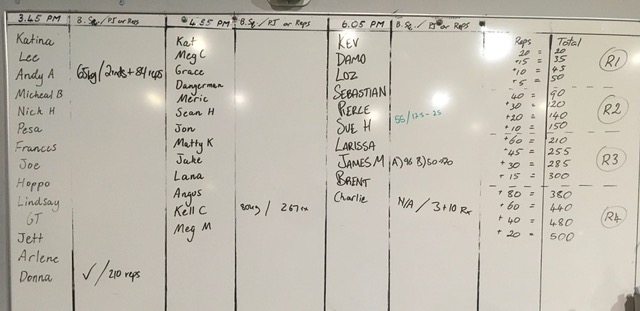 3.45 PM B.Sq / PJ or Reps
Katina
Lee
Andy A 65kg / 2rnds + 84 reps
Micheal B
Nick H
Pesa
Frances
Joe
Hoppo
Lindsay
GT
Jett
Arlene
Donna ✓ / 210 reps
4.55 PM B.Sq / PJ or Reps
Kat
Meg C
Grace
Dangerman
Meric
Sean H
Jon
Matty K
Jake
Lana
Angus
Kell C 80kg / 267
Meg M
6.05 PM B.Sq / PJ or Reps
KEV
DAMO
LOZ
SEBASTIAN
PIERCE 55 / 125-25
SUE H
LARISSA
JAMES M A) 96 B)
BRENT
Charlie N/A / 3+10 Rx
Reps Total
20 = 20
+15 = 35
+10 = 45
+5 = 50
R1
40 = 90
+30 = 120
+20 = 140
+10 = 150
R2
+60 = 210
+45 = 255
+30 = 285
+15 = 300
R3
+80 = 380
+60 = 440
+40 = 480
+20 = 500
R4